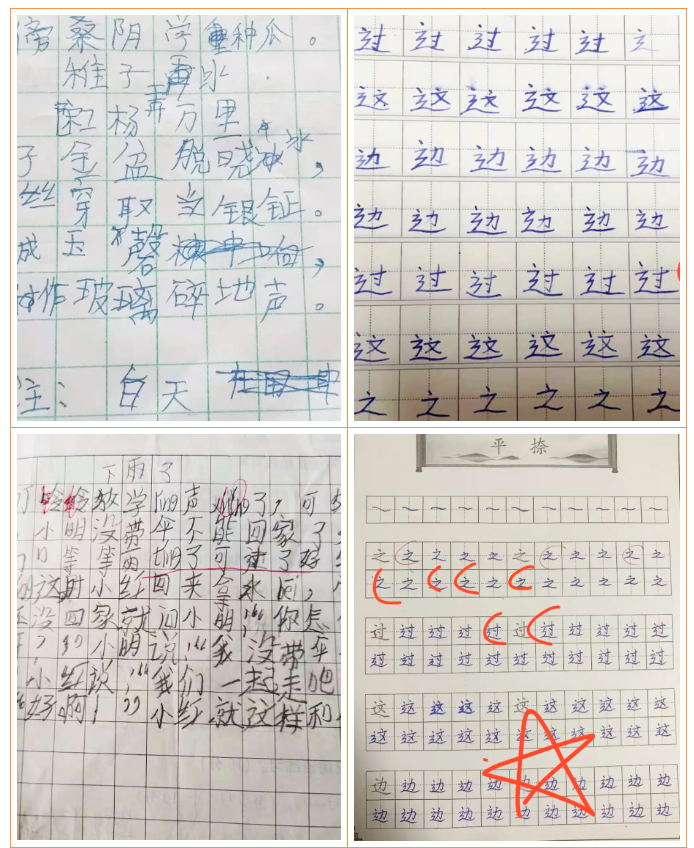 傍桑阴学种瓜。
稚子弄冰
杨万里
子金盆脱晓冰,
丝穿取当银钲。
成玉磬,
作玻璃碎地声。
注:白天
过 过 过 过 过
这 这 这 这 这 这
边 边 边 边 边 边
边 边 边 边 边 边
过 过 过 过 过 过
这 这 这 这 这 这
之 之 之 之 之 之
下雨了
铃铃放学的声响了,可
小明没带伞不能回家了
等等雨了可过了好
这时小红回来拿水
没回家就问小明,“你怎
?”小明说,“我没带伞
小红说,“我们一起走吧
好啊!”小红就这样和
平捺
之 之 之 之 之 之 之 之 之 之 之
之 之 之 之 之 之 之 之 之 之 之
过 过 过 过 过 过 过 过 过 过 过
过 过 过 过 过 过 过 过 过 过 过
这 这 这 这 这 这 这 这 这 这 这
这 这 这 这 这 这 这 这 这 这 这
边 边 边 边 边 边 边 边 边 边 边
边 边 边 边 边 边 边 边 边 边 边